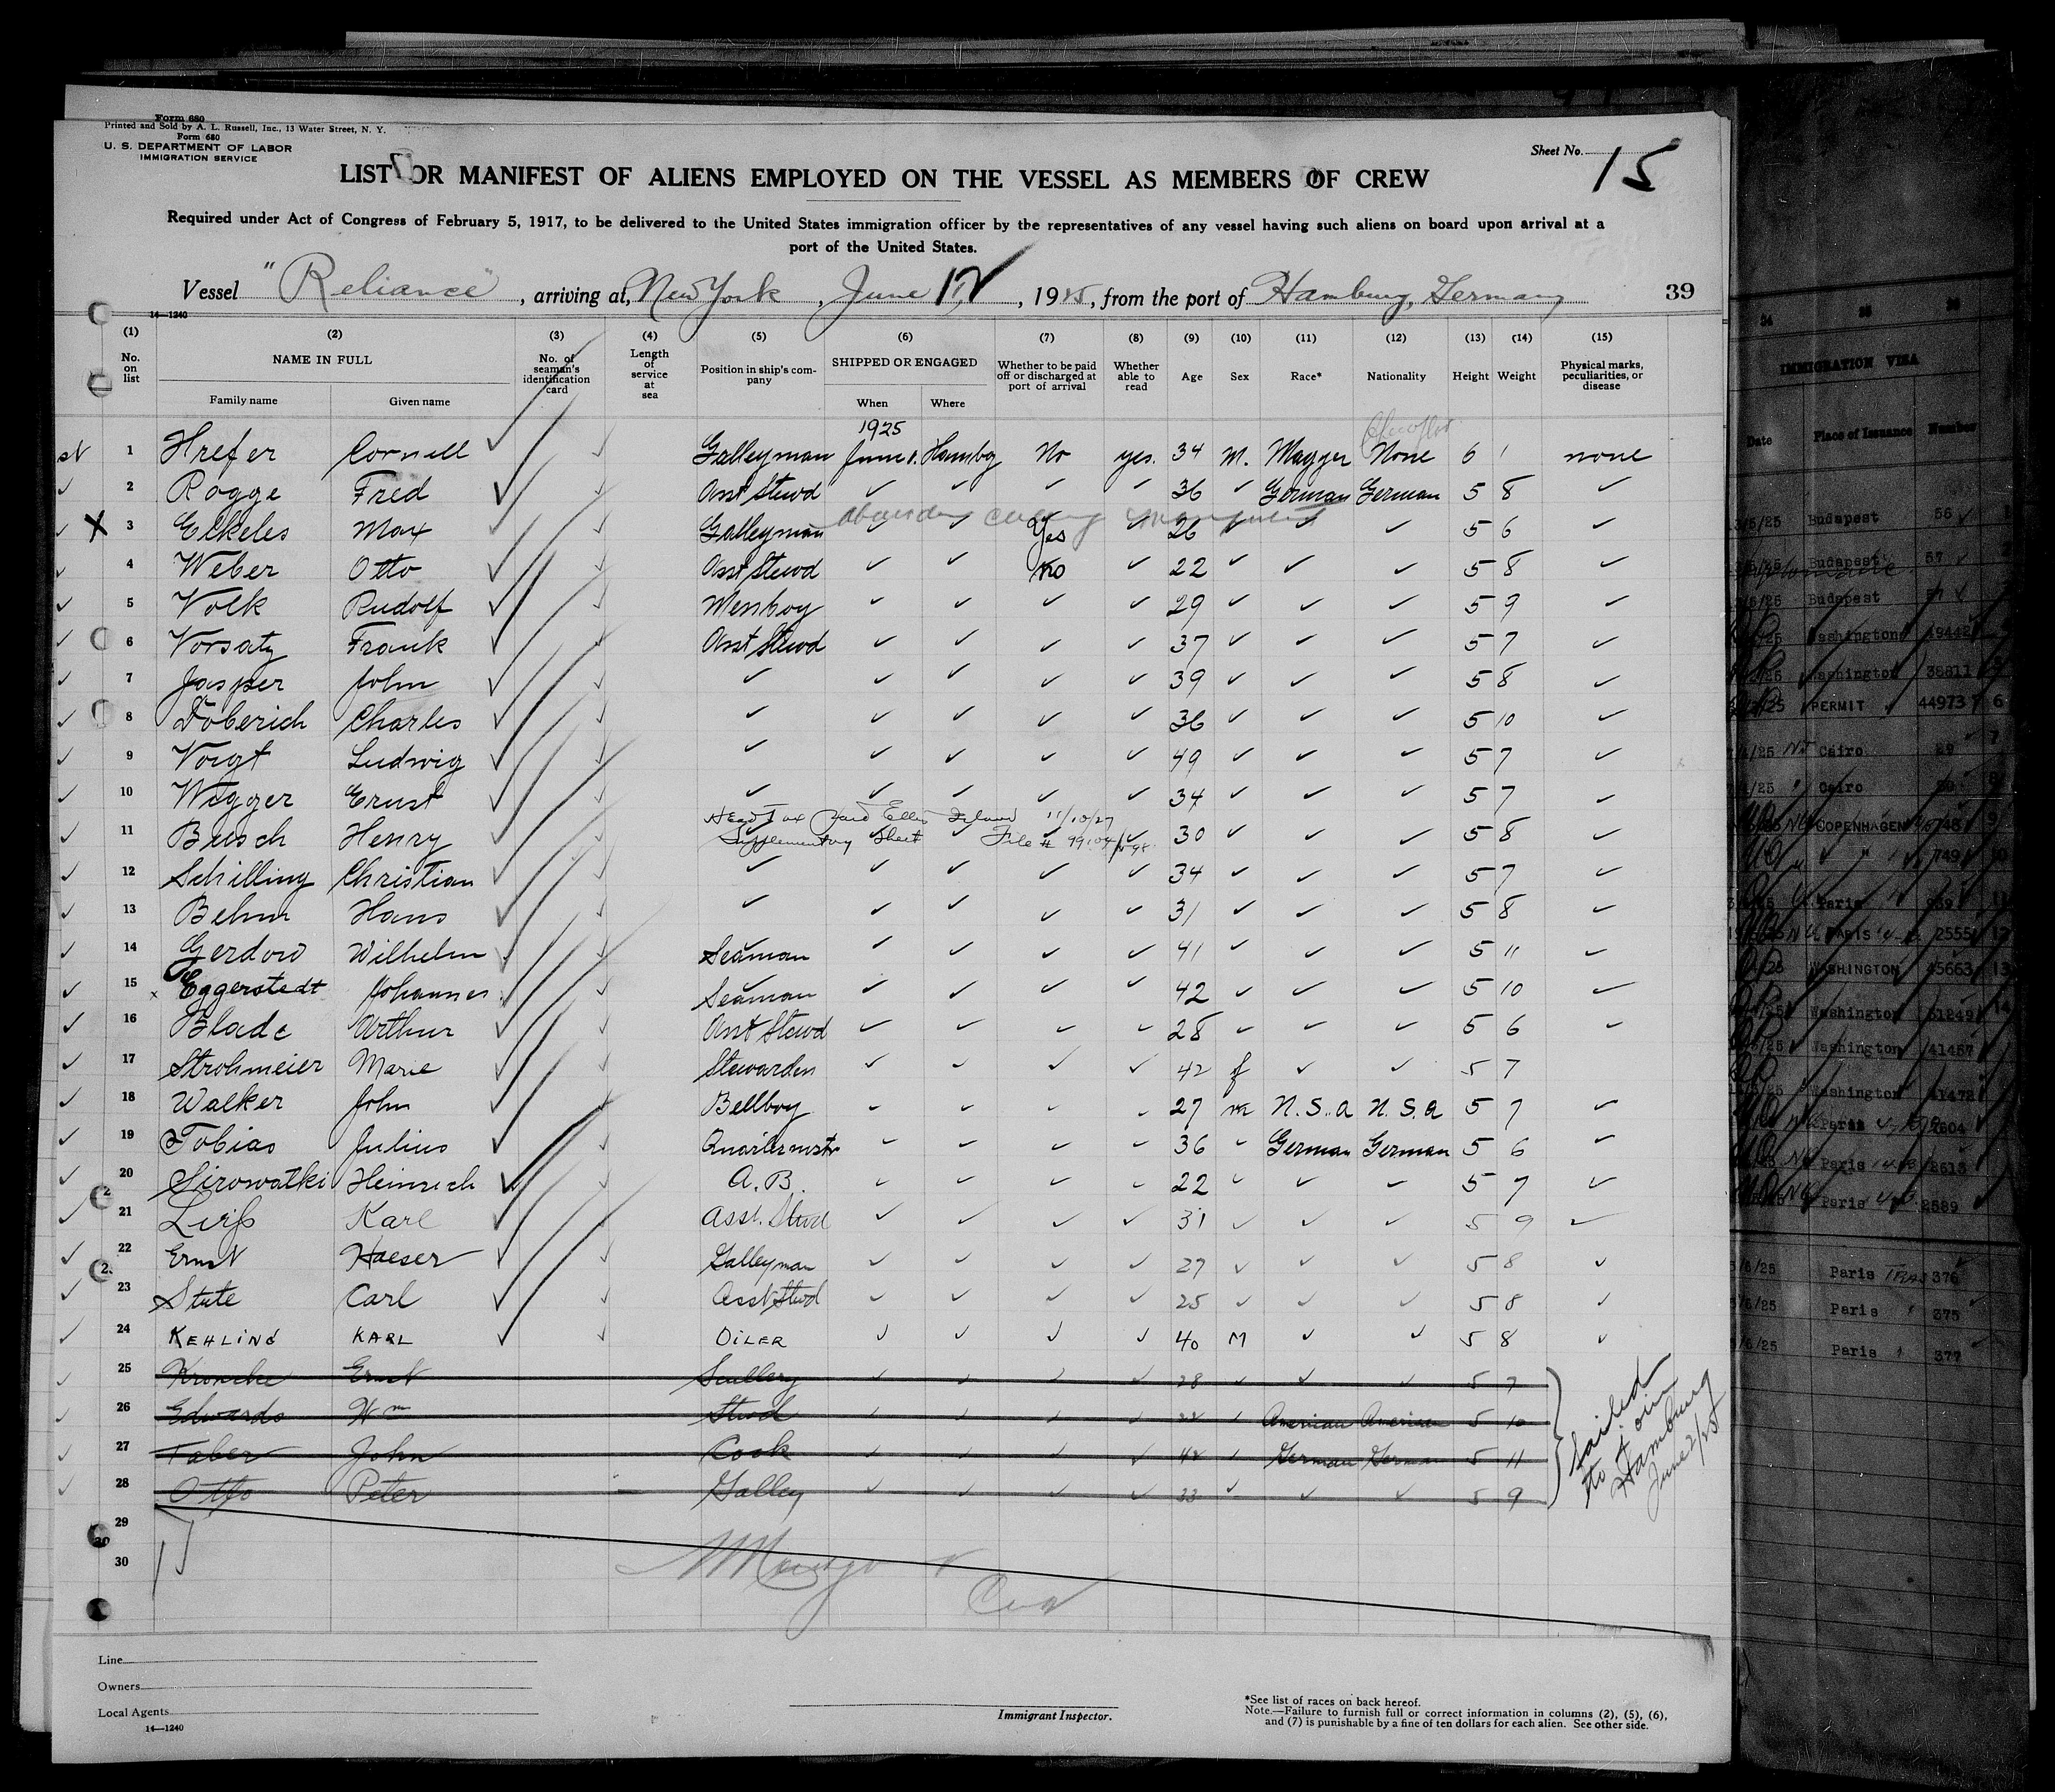 Form 680
Printed and Sold by A. L. Russell, Inc., 13 Water Street, N. Y.
Form 680
U. S. DEPARTMENT OF LABOR
IMMIGRATION SERVICE
Sheet No. 15
LIST OR MANIFEST OF ALIENS EMPLOYED ON THE VESSEL AS MEMBERS OF CREW
Required under Act of Congress of February 5, 1917, to be delivered to the United States immigration officer by the representatives of any vessel having such aliens on board upon arrival at a
port of the United States.
Vessel "Reliance", arriving at, New York, June 12, 1925, from the port of Hamburg, Germany 39
14—1240
(1) (2) (3) (4) (5) (6) (7) (8) (9) (10) (11) (12) (13) (14) (15)
No. on list NAME IN FULL No. of seaman's identification card Length of service at sea Position in ship's company SHIPPED OR ENGAGED Whether to be paid off or discharged at port of arrival Whether able to read Age Sex Race* Nationality Height Weight Physical marks, peculiarities, or disease
Family name Given name When Where
1925
1 Hrefer Cornell ✓ ✓ Galleyman June 1. Hambg No yes. 34 M. Magyer None 6 1 none
2 Rogge Fred ✓ ✓ Asst Stewd ✓ ✓ ✓ ✓ 36 ✓ German German 5 8 ✓
3 Elkeles Max ✓ ✓ Galleyman ✓ ✓ Yes ✓ 26 ✓ ✓ ✓ 5 6 ✓
4 Weber Otto ✓ ✓ Asst Stewd ✓ ✓ No ✓ 22 ✓ ✓ ✓ 5 8 ✓
5 Volk Rudolf ✓ ✓ Messboy ✓ ✓ ✓ ✓ 29 ✓ ✓ ✓ 5 9 ✓
6 Vorsatz Frank ✓ ✓ Asst Stewd ✓ ✓ ✓ ✓ 37 ✓ ✓ ✓ 5 7 ✓
7 Jasper John ✓ ✓ ✓ ✓ ✓ ✓ ✓ 39 ✓ ✓ ✓ 5 8 ✓
8 Doberich Charles ✓ ✓ ✓ ✓ ✓ ✓ ✓ 36 ✓ ✓ ✓ 5 10 ✓
9 Voigt Ludwig ✓ ✓ ✓ ✓ ✓ ✓ ✓ 49 ✓ ✓ ✓ 5 7 ✓
10 Wigger Ernst ✓ ✓ ✓ ✓ ✓ ✓ ✓ 34 ✓ ✓ ✓ 5 7 ✓
Head Tax Paid Ellis Island 11/10/27
11 Busch Henry ✓ ✓ Supplementary Sheet File # 99104/ ✓ 30 ✓ ✓ ✓ 5 8 ✓
12 Schilling Christian ✓ ✓ ✓ ✓ ✓ ✓ ✓ 34 ✓ ✓ ✓ 5 7 ✓
13 Behm Hans ✓ ✓ ✓ ✓ ✓ ✓ ✓ 31 ✓ ✓ ✓ 5 8 ✓
14 Gerdow Wilhelm ✓ ✓ Seaman ✓ ✓ ✓ ✓ 41 ✓ ✓ ✓ 5 11 ✓
15 Eggerstedt Johannes ✓ ✓ Seaman ✓ ✓ ✓ ✓ 42 ✓ ✓ ✓ 5 10 ✓
16 Blade Arthur ✓ ✓ Asst Stewd ✓ ✓ ✓ ✓ 28 ✓ ✓ ✓ 5 6 ✓
17 Strohmeier Marie ✓ ✓ Stewardess ✓ ✓ ✓ ✓ 42 f ✓ ✓ 5 7
18 Walker John ✓ ✓ Bellboy ✓ ✓ ✓ ✓ 27 m U.S.A U.S.A 5 7 ✓
19 Tobias Julius ✓ ✓ Quartermstr ✓ ✓ ✓ ✓ 36 ✓ German German 5 6 ✓
20 Sirowatki Heinrich ✓ ✓ A.B. ✓ ✓ ✓ ✓ 22 ✓ ✓ ✓ 5 7 ✓
21 Karl ✓ ✓ Asst. Stwd ✓ ✓ ✓ ✓ 31 ✓ ✓ ✓ 5 9 ✓
22 Ernst Haeser ✓ ✓ Galleyman ✓ ✓ ✓ ✓ 27 ✓ ✓ ✓ 5 8 ✓
23 Stute Carl ✓ ✓ Asst Stwd ✓ ✓ ✓ ✓ 25 ✓ ✓ ✓ 5 8 ✓
24 KEHLING KARL ✓ ✓ OILER ✓ ✓ ✓ ✓ 40 M ✓ ✓ 5 8 ✓
25 Kroncke Ernst Scullery ✓ ✓ ✓ ✓ 28 ✓ ✓ ✓ 5 7
26 Edwards Wm Stwd ✓ ✓ ✓ ✓ 22 ✓ American American 5 10
27 Taber John Cook ✓ ✓ ✓ ✓ 42 ✓ German German 5 11
28 Otto Peter Galley ✓ ✓ ✓ ✓ 33 ✓ ✓ ✓ 5 9
Sailed
to join
Hamburg
June 2/25
29
30
Line
Owners
Local Agents
14—1240
Immigrant Inspector.
*See list of races on back hereof.
Note.—Failure to furnish full or correct information in columns (2), (5), (6),
and (7) is punishable by a fine of ten dollars for each alien. See other side.
IMMIGRATION VISA
Date Place of Issuance Number
Budapest 56
Budapest 57
Budapest
Washington 49442
Washington 38811
PERMIT 44973 6
Cairo
Cairo
COPENHAGEN
Paris
PARIS 2555
WASHINGTON 45663 13
Washington 51249 14
Washington 41457
Washington 41472
Paris
Paris 2613
Paris 2589
Paris 376
Paris 375
Paris 377